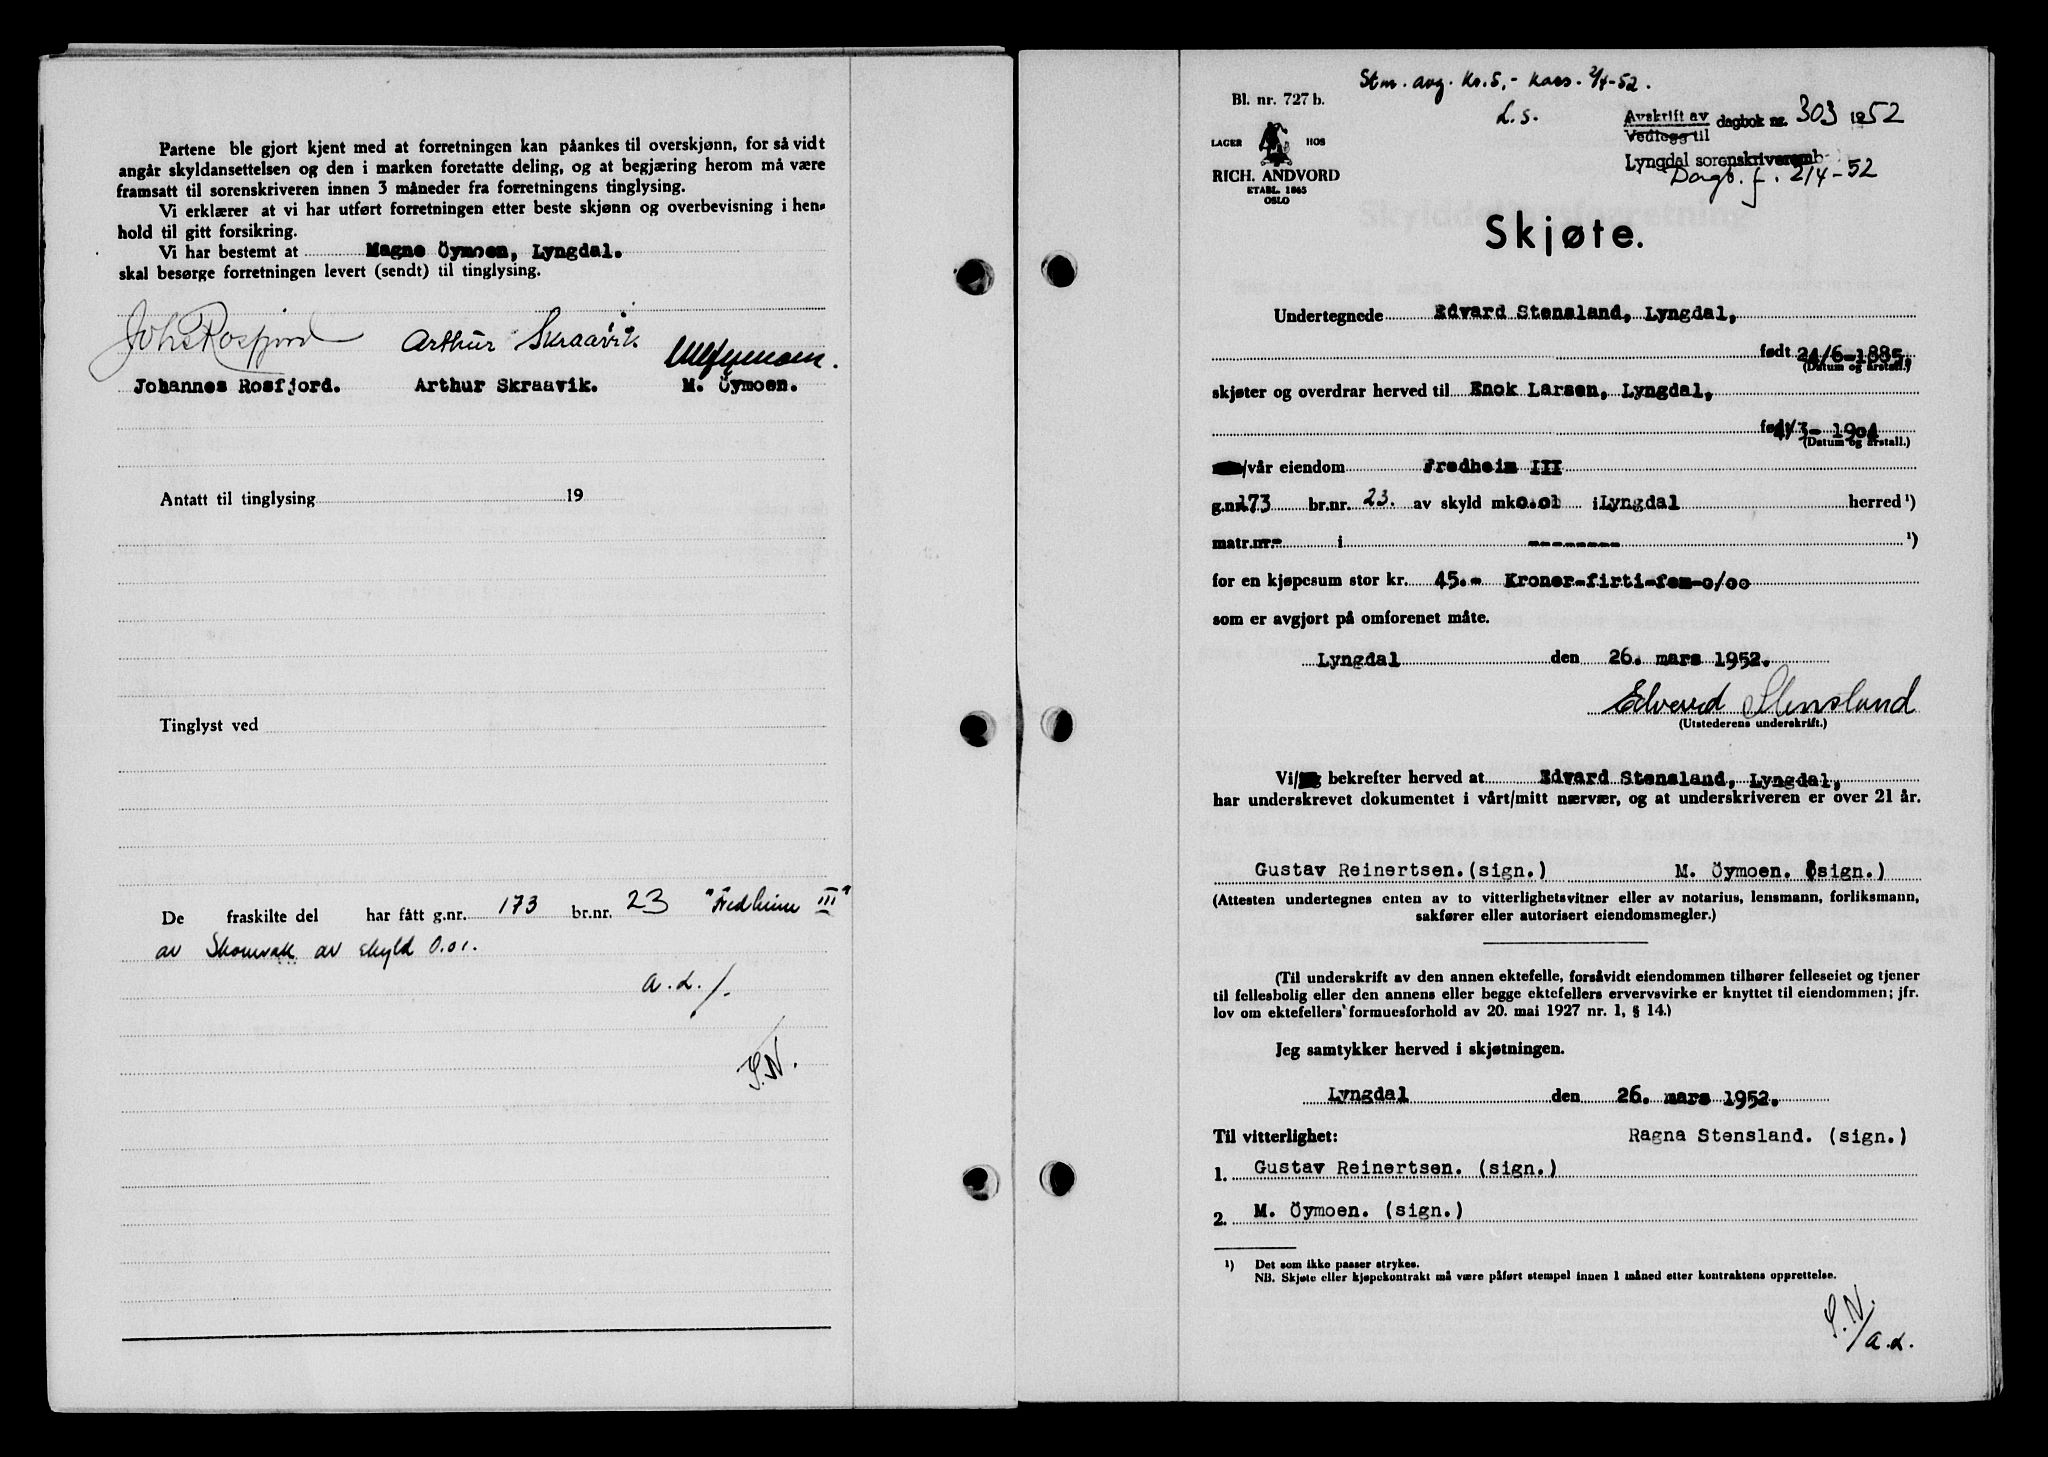 Partene ble gjort kjent med at forretningen kan påankes til overskjønn, for så vidt
angår skyldansettelsen og den i marken foretatte deling, og at begjæring herom må være
framsatt til sorenskriveren innen 3 måneder fra forretningens tinglysing.
Vi erklærer at vi har utført forretningen etter beste skjønn og overbevisning i hen-
hold til gitt forsikring.
Vi har bestemt at Magne Öymoen, Lyngdal.
skal besørge forretningen levert (sendt) til tinglysing.
Joh. Rosfjord Arthur Skraavik
Johannes Rosfjord. Arthur Skraavik. M. Öymoen.
Antatt til tinglysing 19
Tinglyst ved
De fraskilte del har fått g.nr. 173 br.nr. 23 "Fredheim III"
av Skomrak av skyld 0.01.
a.L./.
S.N.
Stm. avg. kr. 5,- kass. 2/4-52.
L.S.
Bl. nr. 727 b.
LAGER HOS
RICH. ANDVORD
ETABL. 1865
OSLO
Avskrift av
Vedlegg til dagbok nr. 303 1952
Lyngdal sorenskriveremb
Dagb. f. 2/4-52
Skjøte.
Undertegnede Edvard Stensland, Lyngdal,
født 24/6-1885,
(Datum og årstall.)
skjøter og overdrar herved til Enok Larsen, Lyngdal,
født 4/3-1904
(Datum og årstall.)
/vår eiendom Fredheim III
g.nr. 173 br.nr. 23. av skyld mk 0.01 i Lyngdal herred ¹)
matr.nr. - i -------- ¹)
for en kjøpesum stor kr. 45.- Kroner-firti-fem-0/00
som er avgjort på omforenet måte.
Lyngdal den 26. mars 1952.
Edvard Stensland
(Utstederens underskrift.)
Vi/jeg bekrefter herved at Edvard Stensland, Lyngdal,
har underskrevet dokumentet i vårt/mitt nærvær, og at underskriveren er over 21 år.
Gustav Reinertsen. (sign.) M. Öymoen. (sign.)
(Attesten undertegnes enten av to vitterlighetsvitner eller av notarius, lensmann, forliksmann,
sakfører eller autorisert eiendomsmegler.)
(Til underskrift av den annen ektefelle, forsåvidt eiendommen tilhører felleseiet og tjener
til fellesbolig eller den annens eller begge ektefellers ervervsvirke er knyttet til eiendommen; jfr.
lov om ektefellers formuesforhold av 20. mai 1927 nr. 1, § 14.)
Jeg samtykker herved i skjøtningen.
Lyngdal den 26. mars 1952.
Til vitterlighet: Ragna Stensland. (sign.)
1. Gustav Reinertsen. (sign.)
2. M. Öymoen. (sign.)
¹) Det som ikke passer strykes.
NB. Skjøte eller kjøpekontrakt må være påført stempel innen 1 måned etter kontraktens opprettelse.
S.N./
a.L.